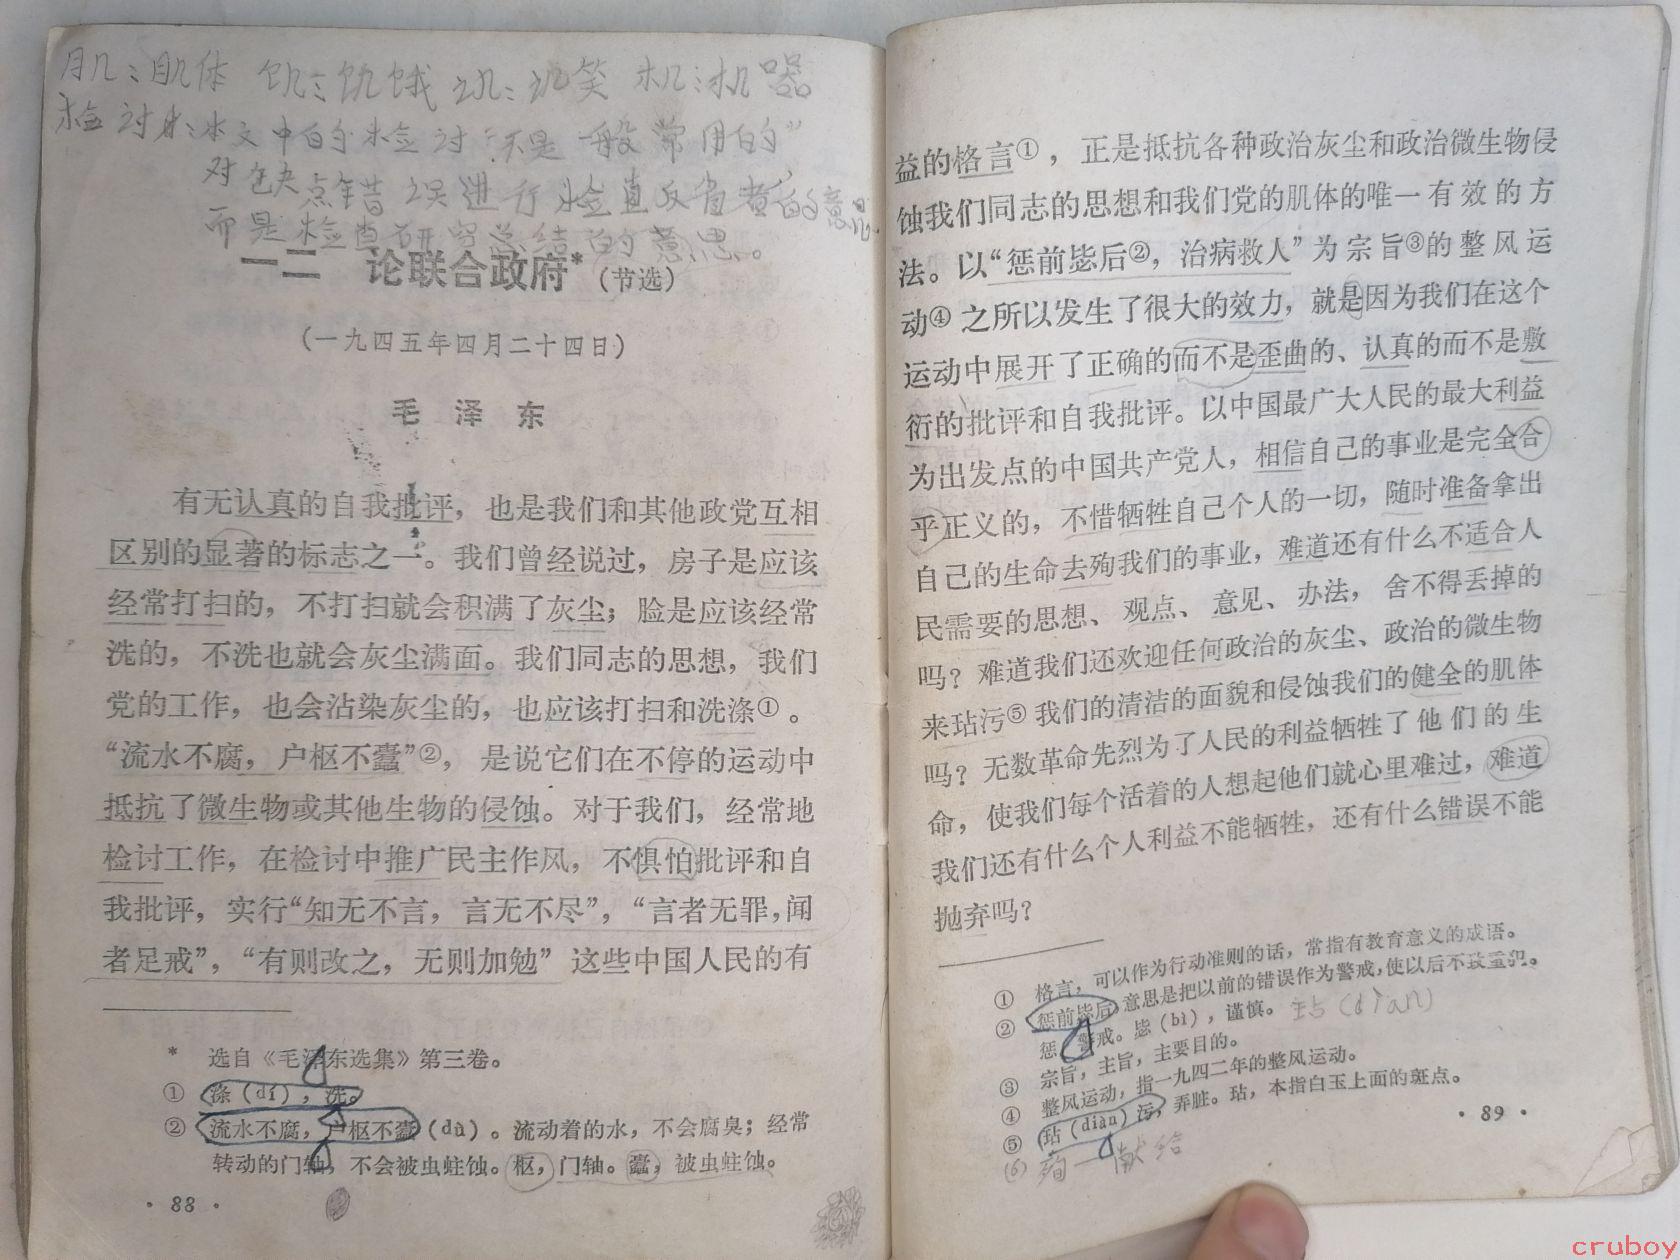 肌：肌体 饥：饥饿 讥：讥笑 机：机器
检讨：本文中的检讨“不是一般常用的”
对缺点错误进行检查反省者的意思
而是检查研究总结的意思。
一二 论联合政府*（节选）
（一九四五年四月二十四日）
毛 泽 东
有无认真的自我批评，也是我们和其他政党互相
区别的显著的标志之一。我们曾经说过，房子是应该
经常打扫的，不打扫就会积满了灰尘；脸是应该经常
洗的，不洗也就会灰尘满面。我们同志的思想，我们
党的工作，也会沾染灰尘的，也应该打扫和洗涤①。
“流水不腐，户枢不蠹”②，是说它们在不停的运动中
抵抗了微生物或其他生物的侵蚀。对于我们，经常地
检讨工作，在检讨中推广民主作风，不惧怕批评和自
我批评，实行“知无不言，言无不尽”，“言者无罪，闻
者足戒”，“有则改之，无则加勉”这些中国人民的有
* 选自《毛泽东选集》第三卷。
① 涤（dí），洗。
② 流水不腐，户枢不蠹（dù）。流动着的水，不会腐臭；经常
转动的门轴，不会被虫蛀蚀。枢，门轴。蠹，被虫蛀蚀。
· 88 ·
益的格言①，正是抵抗各种政治灰尘和政治微生物侵
蚀我们同志的思想和我们党的肌体的唯一有效的方
法。以“惩前毖后②，治病救人”为宗旨③的整风运
动④之所以发生了很大的效力，就是因为我们在这个
运动中展开了正确的而不是歪曲的、认真的而不是敷
衍的批评和自我批评。以中国最广大人民的最大利益
为出发点的中国共产党人，相信自己的事业是完全合
乎正义的，不惜牺牲自己个人的一切，随时准备拿出
自己的生命去殉我们的事业，难道还有什么不适合人
民需要的思想、观点、意见、办法，舍不得丢掉的
吗？难道我们还欢迎任何政治的灰尘、政治的微生物
来玷污⑤我们的清洁的面貌和侵蚀我们的健全的肌体
吗？无数革命先烈为了人民的利益牺牲了他们的生
命，使我们每个活着的人想起他们就心里难过，难道
我们还有什么个人利益不能牺牲，还有什么错误不能
抛弃吗？
① 格言，可以作为行动准则的话，常指有教育意义的成语。
② 惩前毖后，意思是把以前的错误作为警戒，使以后不致重犯。
惩，警戒。毖（bì），谨慎。 玷（diàn）
③ 宗旨，主旨，主要目的。
④ 整风运动，指一九四二年的整风运动。
⑤ 玷（diàn）污，弄脏。玷，本指白玉上面的斑点。
⑥ 殉—献给
· 89 ·
cruboy